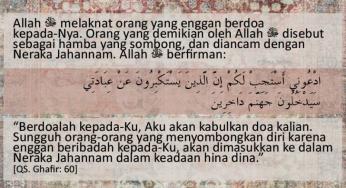 Allah ﷻ melaknat orang yang enggan berdoa
kepada-Nya. Orang yang demikian oleh Allah ﷻ disebut
sebagai hamba yang sombong, dan diancam dengan
Neraka Jahannam. Allah ﷻ berfirman:
ادْعُونِي أَسْتَجِبْ لَكُمْ إِنَّ الَّذِينَ يَسْتَكْبِرُونَ عَنْ عِبَادَتِي
سَيَدْخُلُونَ جَهَنَّمَ دَاخِرِينَ
“Berdoalah kepada-Ku, Aku akan kabulkan doa kalian.
Sungguh orang-orang yang menyombongkan diri karena
enggan beribadah kepada-Ku, akan dimasukkan ke dalam
Neraka Jahannam dalam keadaan hina dina.”
[QS. Ghafir: 60]